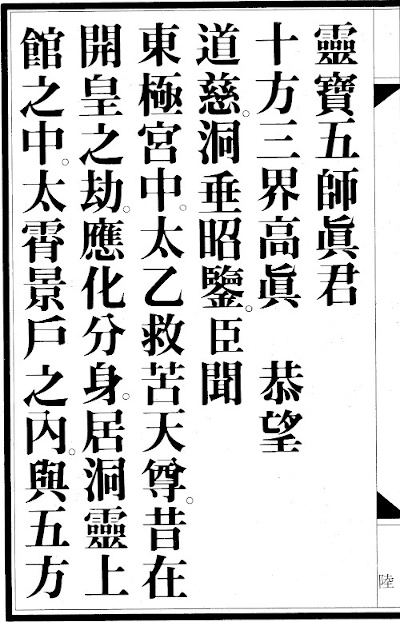 靈寶五師眞君
十方三界高眞　恭望
道慈。洞垂昭鑒。臣聞
東極宮中。太乙救苦天尊。昔在
開皇之劫。應化分身。居洞靈上
館之中。太霄景戶之內。與五方
陸